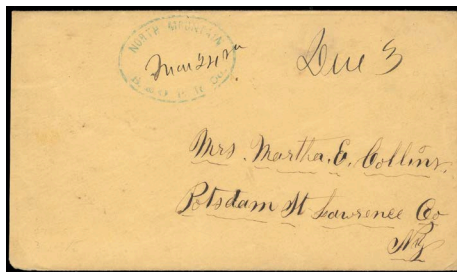 NORTH MOUNTAIN
B & O R R
Due 3
Mrs. Martha. E. Collins.
Potsdam St Lawrence Co
NY